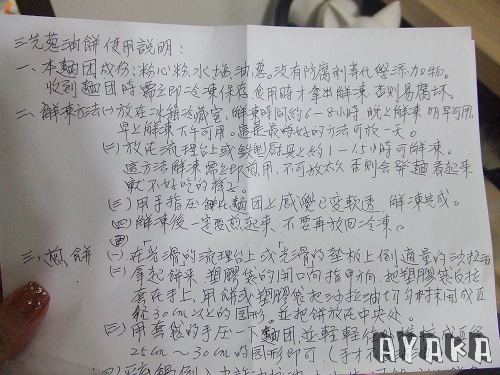 三先葱油餅使用說明：
一、本麵團成份：粉心粉.水.塩.油.葱。沒有防腐剤等化學添加物。
收到麵團時需立即冷凍保存食用時才拿出解凍.否則易腐坏。
二、解凍方法(一)放在冰箱冷藏室，解凍時間約6-8小時 晚上解凍 明早可用,
早上解凍下午可用。這是最好的方法可放一天。
(二)放在流理台或 廚具上約1-1.5小時可解凍。
這方法解凍需立即使用,不可放太久 否則会發麵看起來
就不好吃的樣子。
(三)用手指压 麵團上感覺已變軟透 解凍完成。
(四)解凍後一定要煎起來,不要再放回冷凍。
三、煎餅 (一)在光滑的流理台上或光滑的墊板上倒適量的沙拉油
(二)拿起餅來 塑膠袋的開口向指甲方向,把塑膠袋反拉
套在手上,用餅或塑膠袋把沙拉油 抹開成直
徑30cm以上的圓形。並把餅放在中央处。
(三)用套袋的手压一下麵團,並輕輕
25cm～30cm的圓形即可(手才
AYAKA